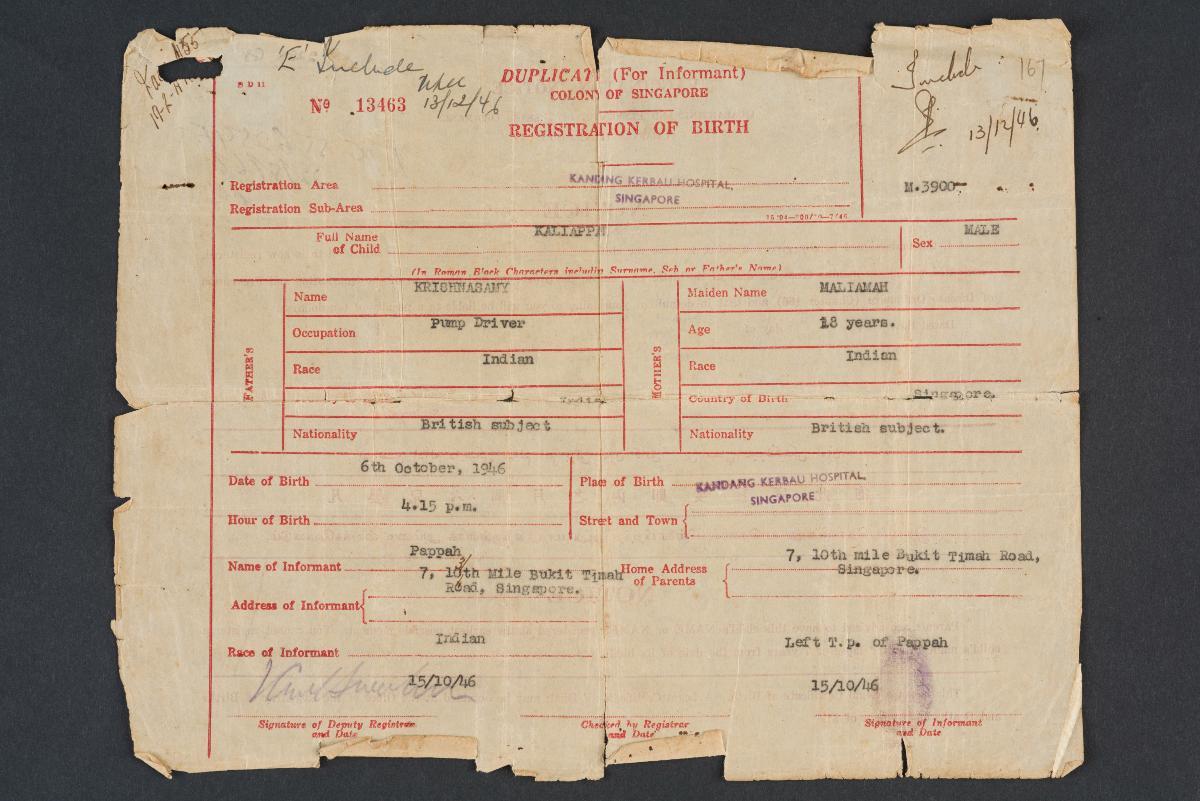 'E' Include
13/12/46
SDH
Nº 13463
DUPLICAT (For Informant)
COLONY OF SINGAPORE
REGISTRATION OF BIRTH
Include 167
13/12/46.
M.3900
Registration Area
KANDANG KERBAU HOSPITAL,
SINGAPORE
Registration Sub-Area
Full Name
of Child
KALIAPPA
(In Roman Block Characters includin Surname, Seh or Father's Name)
Sex MALE
FATHER'S
Name KRISHNASAMY
Occupation Pump Driver
Race Indian
India
Nationality British subject
MOTHER'S
Maiden Name MALIAMAH
Age 18 years.
Race Indian
Country of Birth Singapore.
Nationality British subject.
Date of Birth 6th October, 1946
Hour of Birth 4.15 p.m.
Place of Birth KANDANG KERBAU HOSPITAL,
SINGAPORE
Street and Town
Name of Informant Pappah
Address of Informant 7, 10th Mile Bukit Timah
Road, Singapore.
Home Address
of Parents
7, 10th mile Bukit Timah Road,
Singapore.
Race of Informant Indian
Left T.p. of Pappah
15/10/46
15/10/46
Signature of Deputy Registrar
and Date
Checked by Registrar
and Date
Signature of Informant
and Date